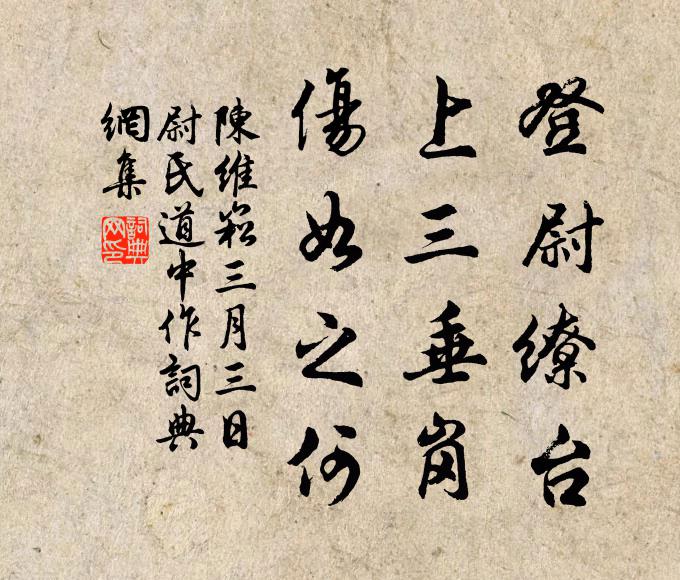 登尉繚台
上三垂岗
傷如之何
陳維崧三月三日
尉氏道中作詞典
網集
詞典
网印